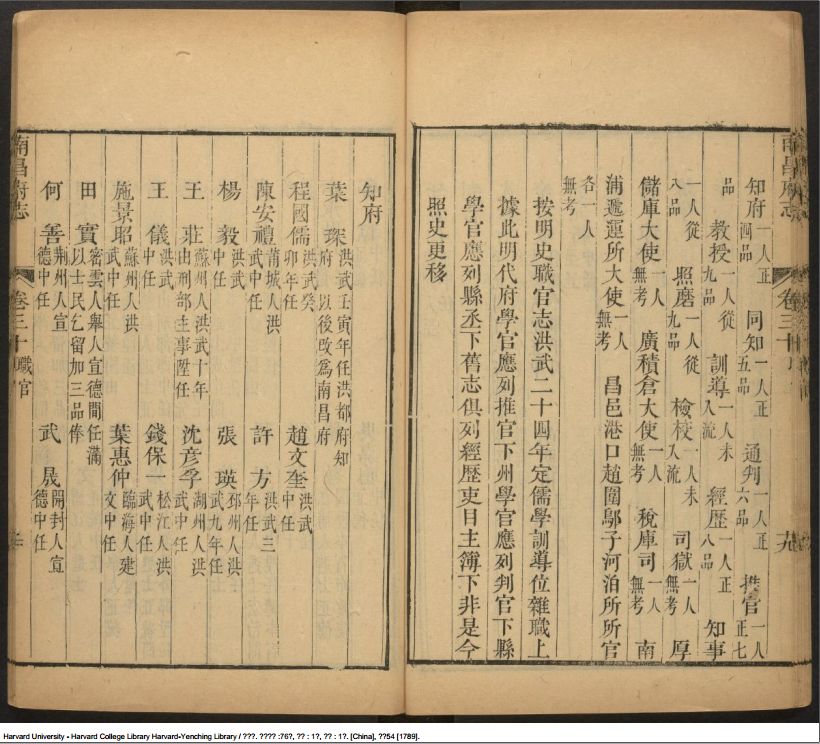 南昌府志
卷三十
知府一人正四品 同知一人正五品 通判一人正六品 推官一人正七
品 教授一人從九品 訓導一人未入流 經歷一人正八品 知事
一人從八品 照磨一人從九品 檢校一人未入流 司獄一人無考 厚
儲庫大使一人無考 廣積倉大使一人無考 稅庫司一人無考 南
浦遞運所大使一人無考 昌邑港口趙圍鄔子河泊所所官
各一人無考
按明史職官志洪武二十四年定儒學訓導位雜職上
據此明代府學官應列推官下州學官應列判官下縣
學官應列縣丞下舊志俱列經歷吏目主簿下非是今
照史更移
知府
葉琛洪武壬寅年任洪都府知府以後改爲南昌府
程國儒洪武癸卯年任 趙文奎洪武中任
陳安禮莆城人洪武中任 許方洪武三年任
楊毅洪武中任 張瑛邳州人洪武九年任
王莊蘇州人洪武十年由刑部主事陞任 沈彥孚湖州人洪武中任
王儀洪武中任 錢保一松江人洪武中任
施景昭蘇州人洪武中任 葉惠仲臨海人建文中任
田實密雲人舉人宣德間任滿以士民乞留加三品俸
何善荆州人宣德中任 武晟開封人宣德中任
南昌府志
卷三十 職官
Harvard University - Harvard College Library Harvard-Yenching Library / ???. ???? :76?, ?? : 1?, ?? : 1?. [China], ??54 [1789].